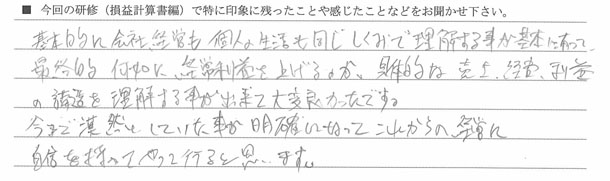 ■ 今回の研修（損益計算書編）で特に印象に残ったことや感じたことなどをお聞かせ下さい。
基本的に会社経営も個人の生活も同じしくみで理解する事が基本にあって
最終的 何如に経常利益を上げるのか、具体的な売上、経費、利益
の構造を理解する事が出来て大変良かったです。
今まで漠然としていた事が明確になってこれからの経営に
自信を持ってやって行ると思います。